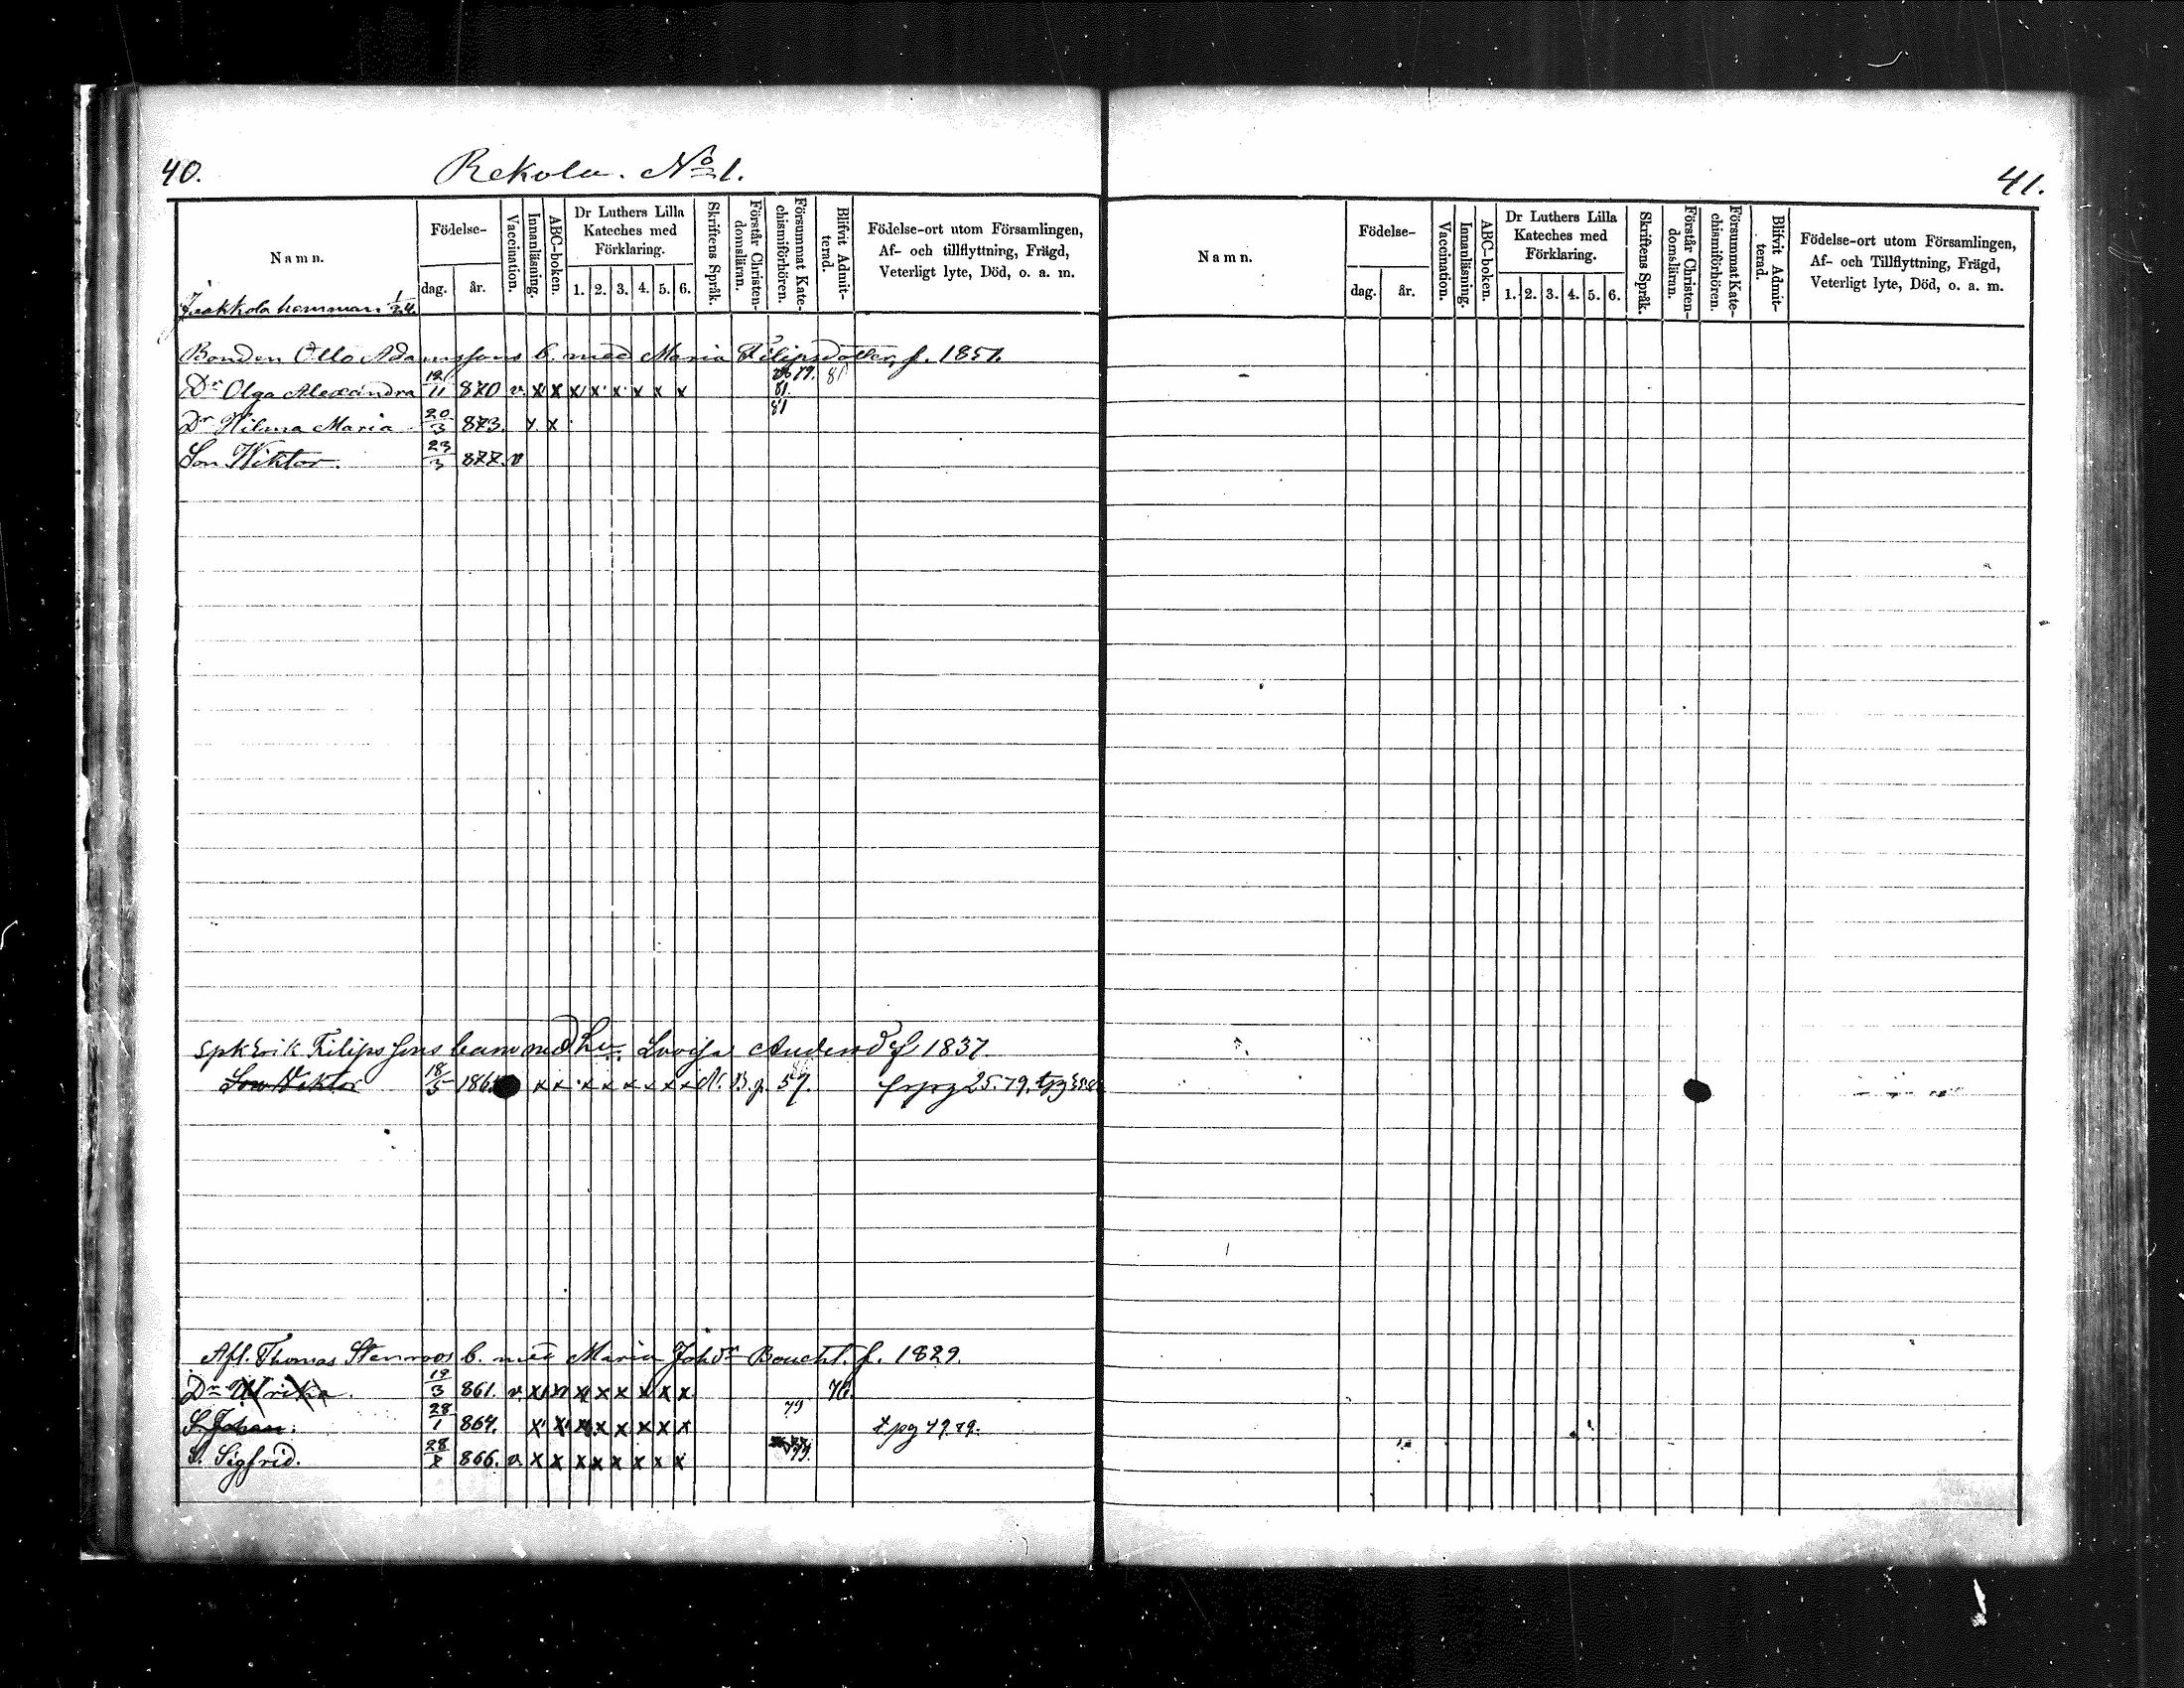 40.
Rekola. No 1.
Namn.
Födelse-
dag.
år.
Vaccination.
Innanläsning.
ABC-boken.
Dr Luthers Lilla Kateches med Förklaring.
1. 2. 3. 4. 5. 6.
Skriftens Språk.
Förstår Christen-domsläran.
Försummat Kate-chismiförhören.
Blifvit Admit-terad.
Födelse-ort utom Församlingen,
Af- och tillflyttning, Frägd,
Veterligt lyte, Död, o. a. m.
Jaakkola hemman.
Bonden Otto Adamssons b. med Maria Filipsdotter, f. 1851.
Dr Olga Alexandra 12/11 870 v. x x x x x x x x 79. 81. 81
Dr Wilma Maria 20/3 873. x x 81
Son Wiktor. 23/3 877. v
Spk Erik Filipssons barn med Lovisa Andersd f 1837
Son Viktor 18/5 186 x x x x x x x x 57.
Afl. Thomas Stenroos b. med Maria Johdr Boucht. f. 1829.
Dr Ulrika. 19/3 861. v. x x x x x x x 76.
S. Johan. 28/1 864. x x x x x x x x 79 t pg 49 79.
S. Sigfrid. 28/ 866. v. x x x x x x x x 79.
41.
Namn.
Födelse-
dag.
år.
Vaccination.
Innanläsning.
ABC-boken.
Dr Luthers Lilla Kateches med Förklaring.
1. 2. 3. 4. 5. 6.
Skriftens Språk.
Förstår Christen-domsläran.
Försummat Kate-chismiförhören.
Blifvit Admit-terad.
Födelse-ort utom Församlingen,
Af- och Tillflyttning, Frägd,
Veterligt lyte, Död, o. a. m.